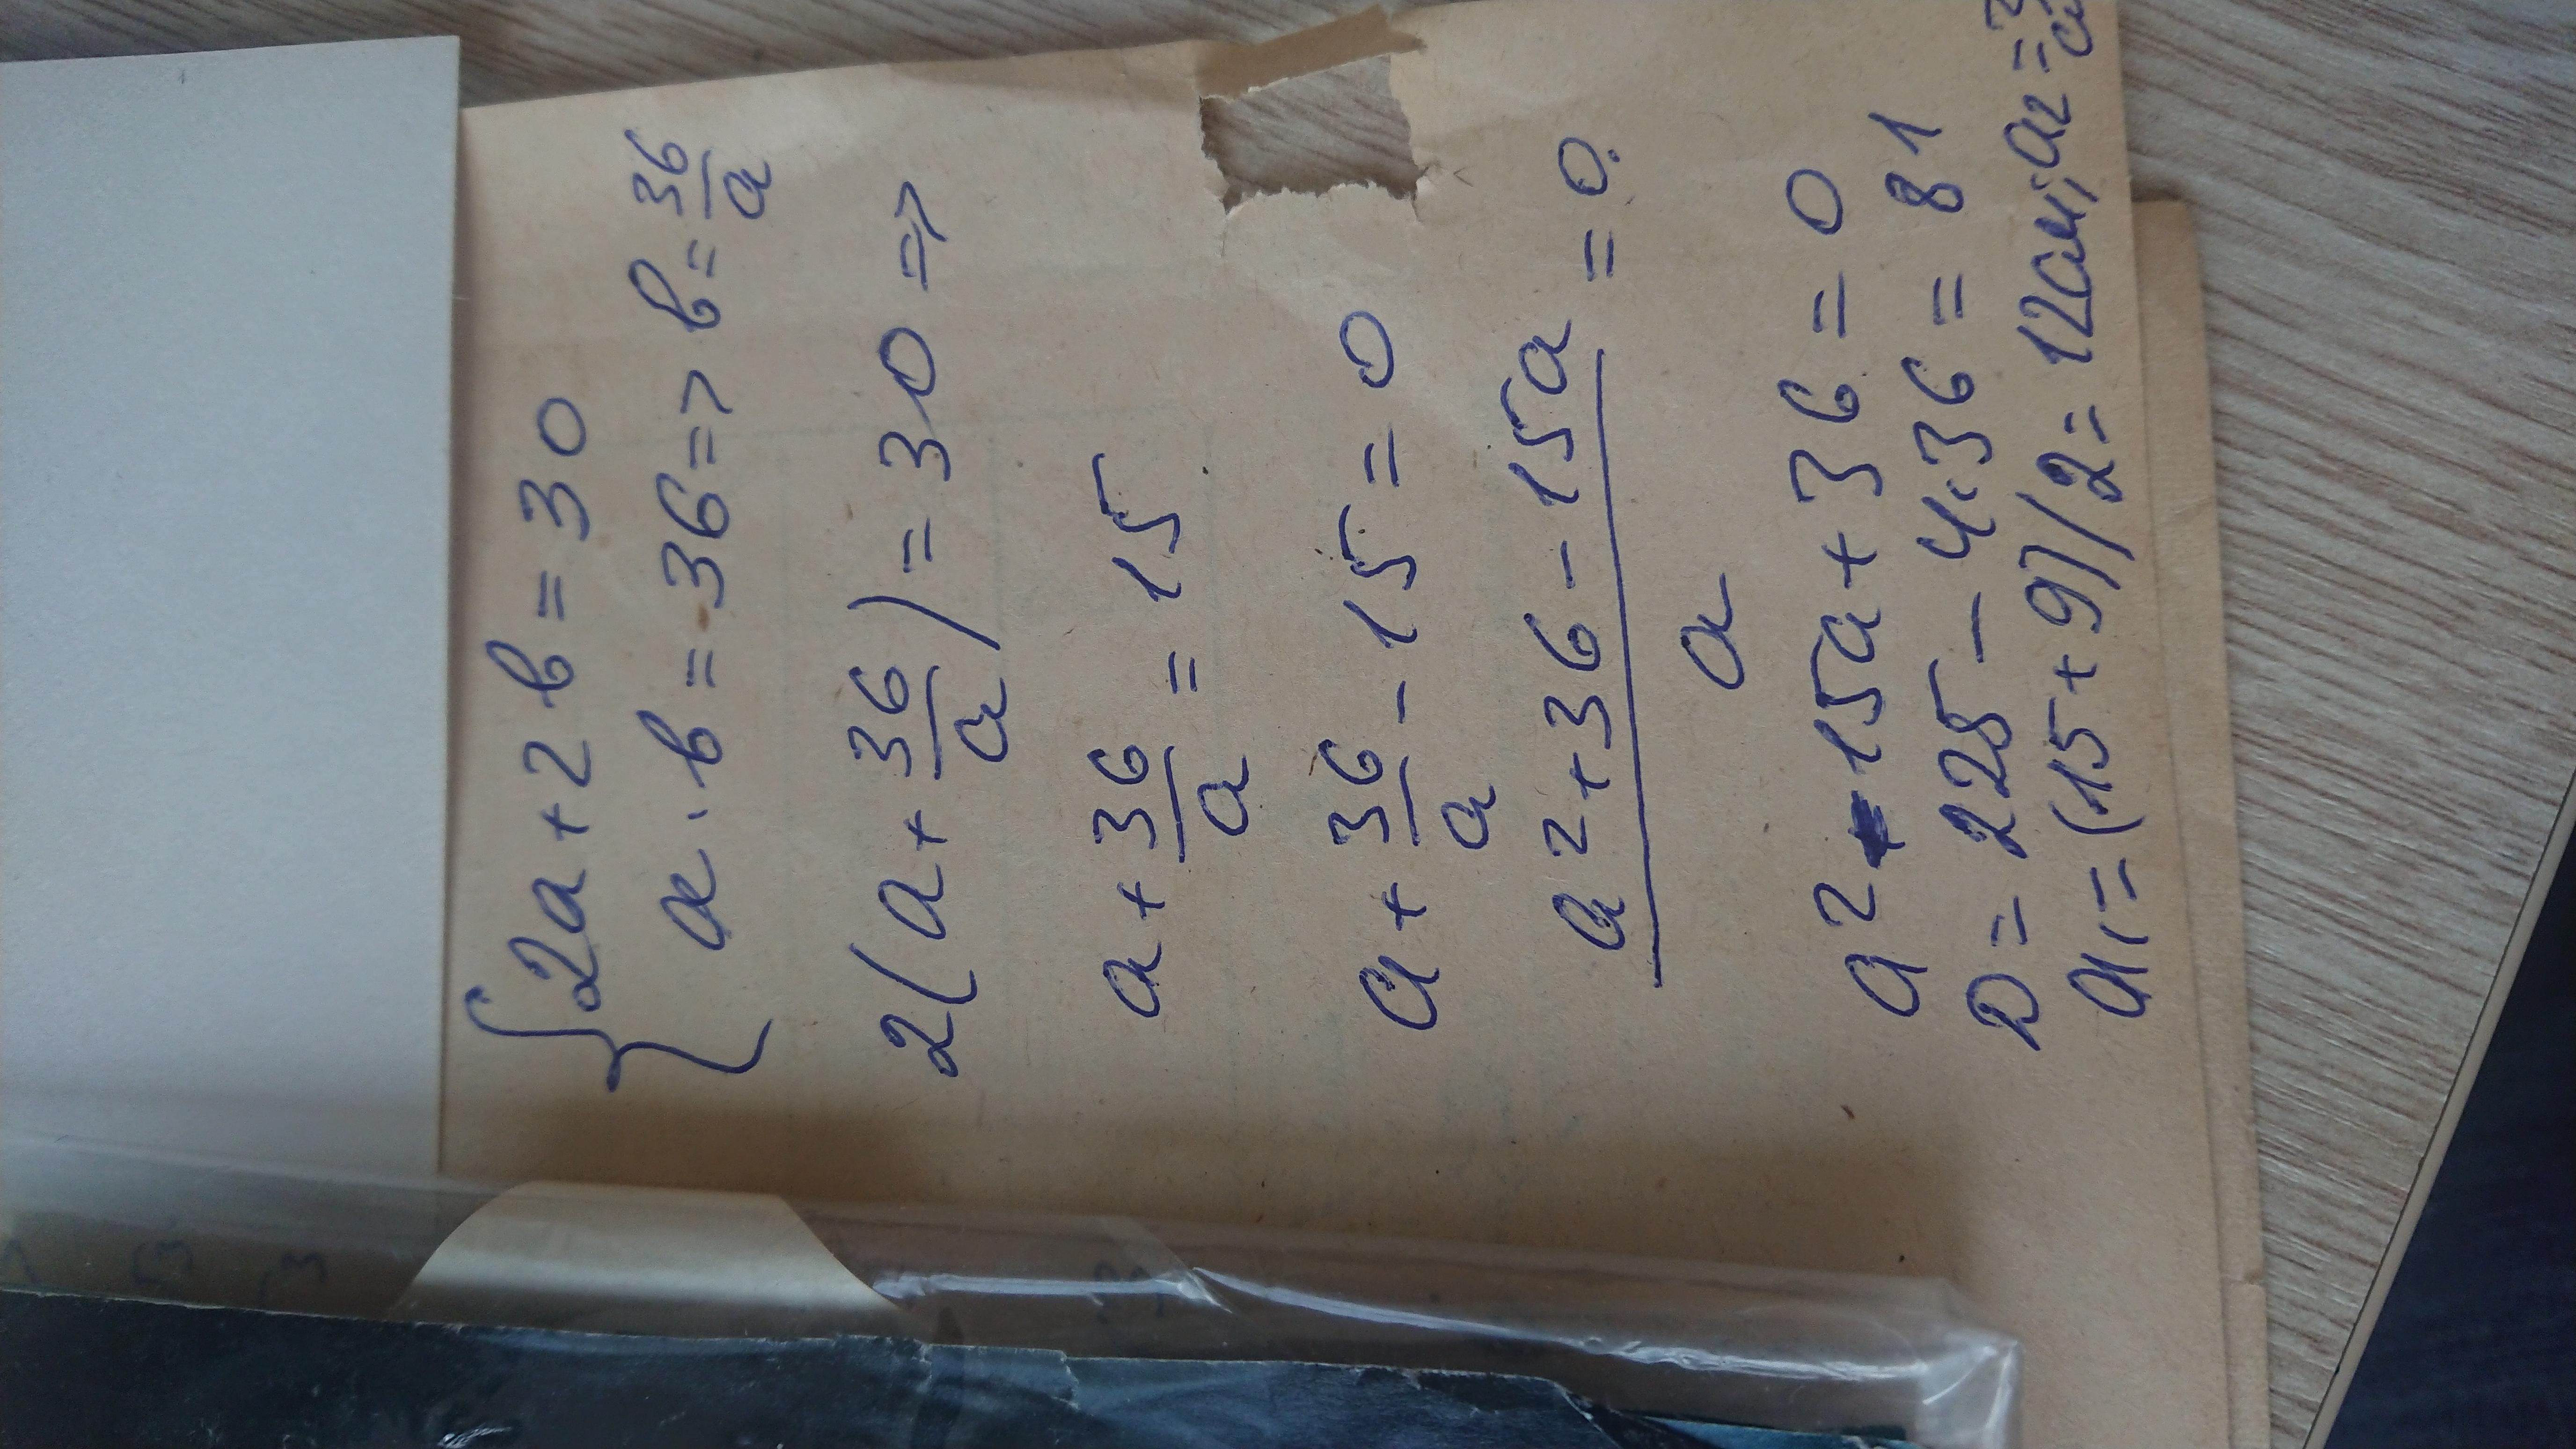 {2a + 2b = 30
a · b = 36 => b = 36/a
2(a + 36/a) = 30 =>
a + 36/a = 15
a + 36/a - 15 = 0
(a² + 36 - 15a)/a = 0.
a² - 15a + 36 = 0
D = 225 - 4·36 = 81
a₁ = (15 + 9)/2 = 12см; a₂ =